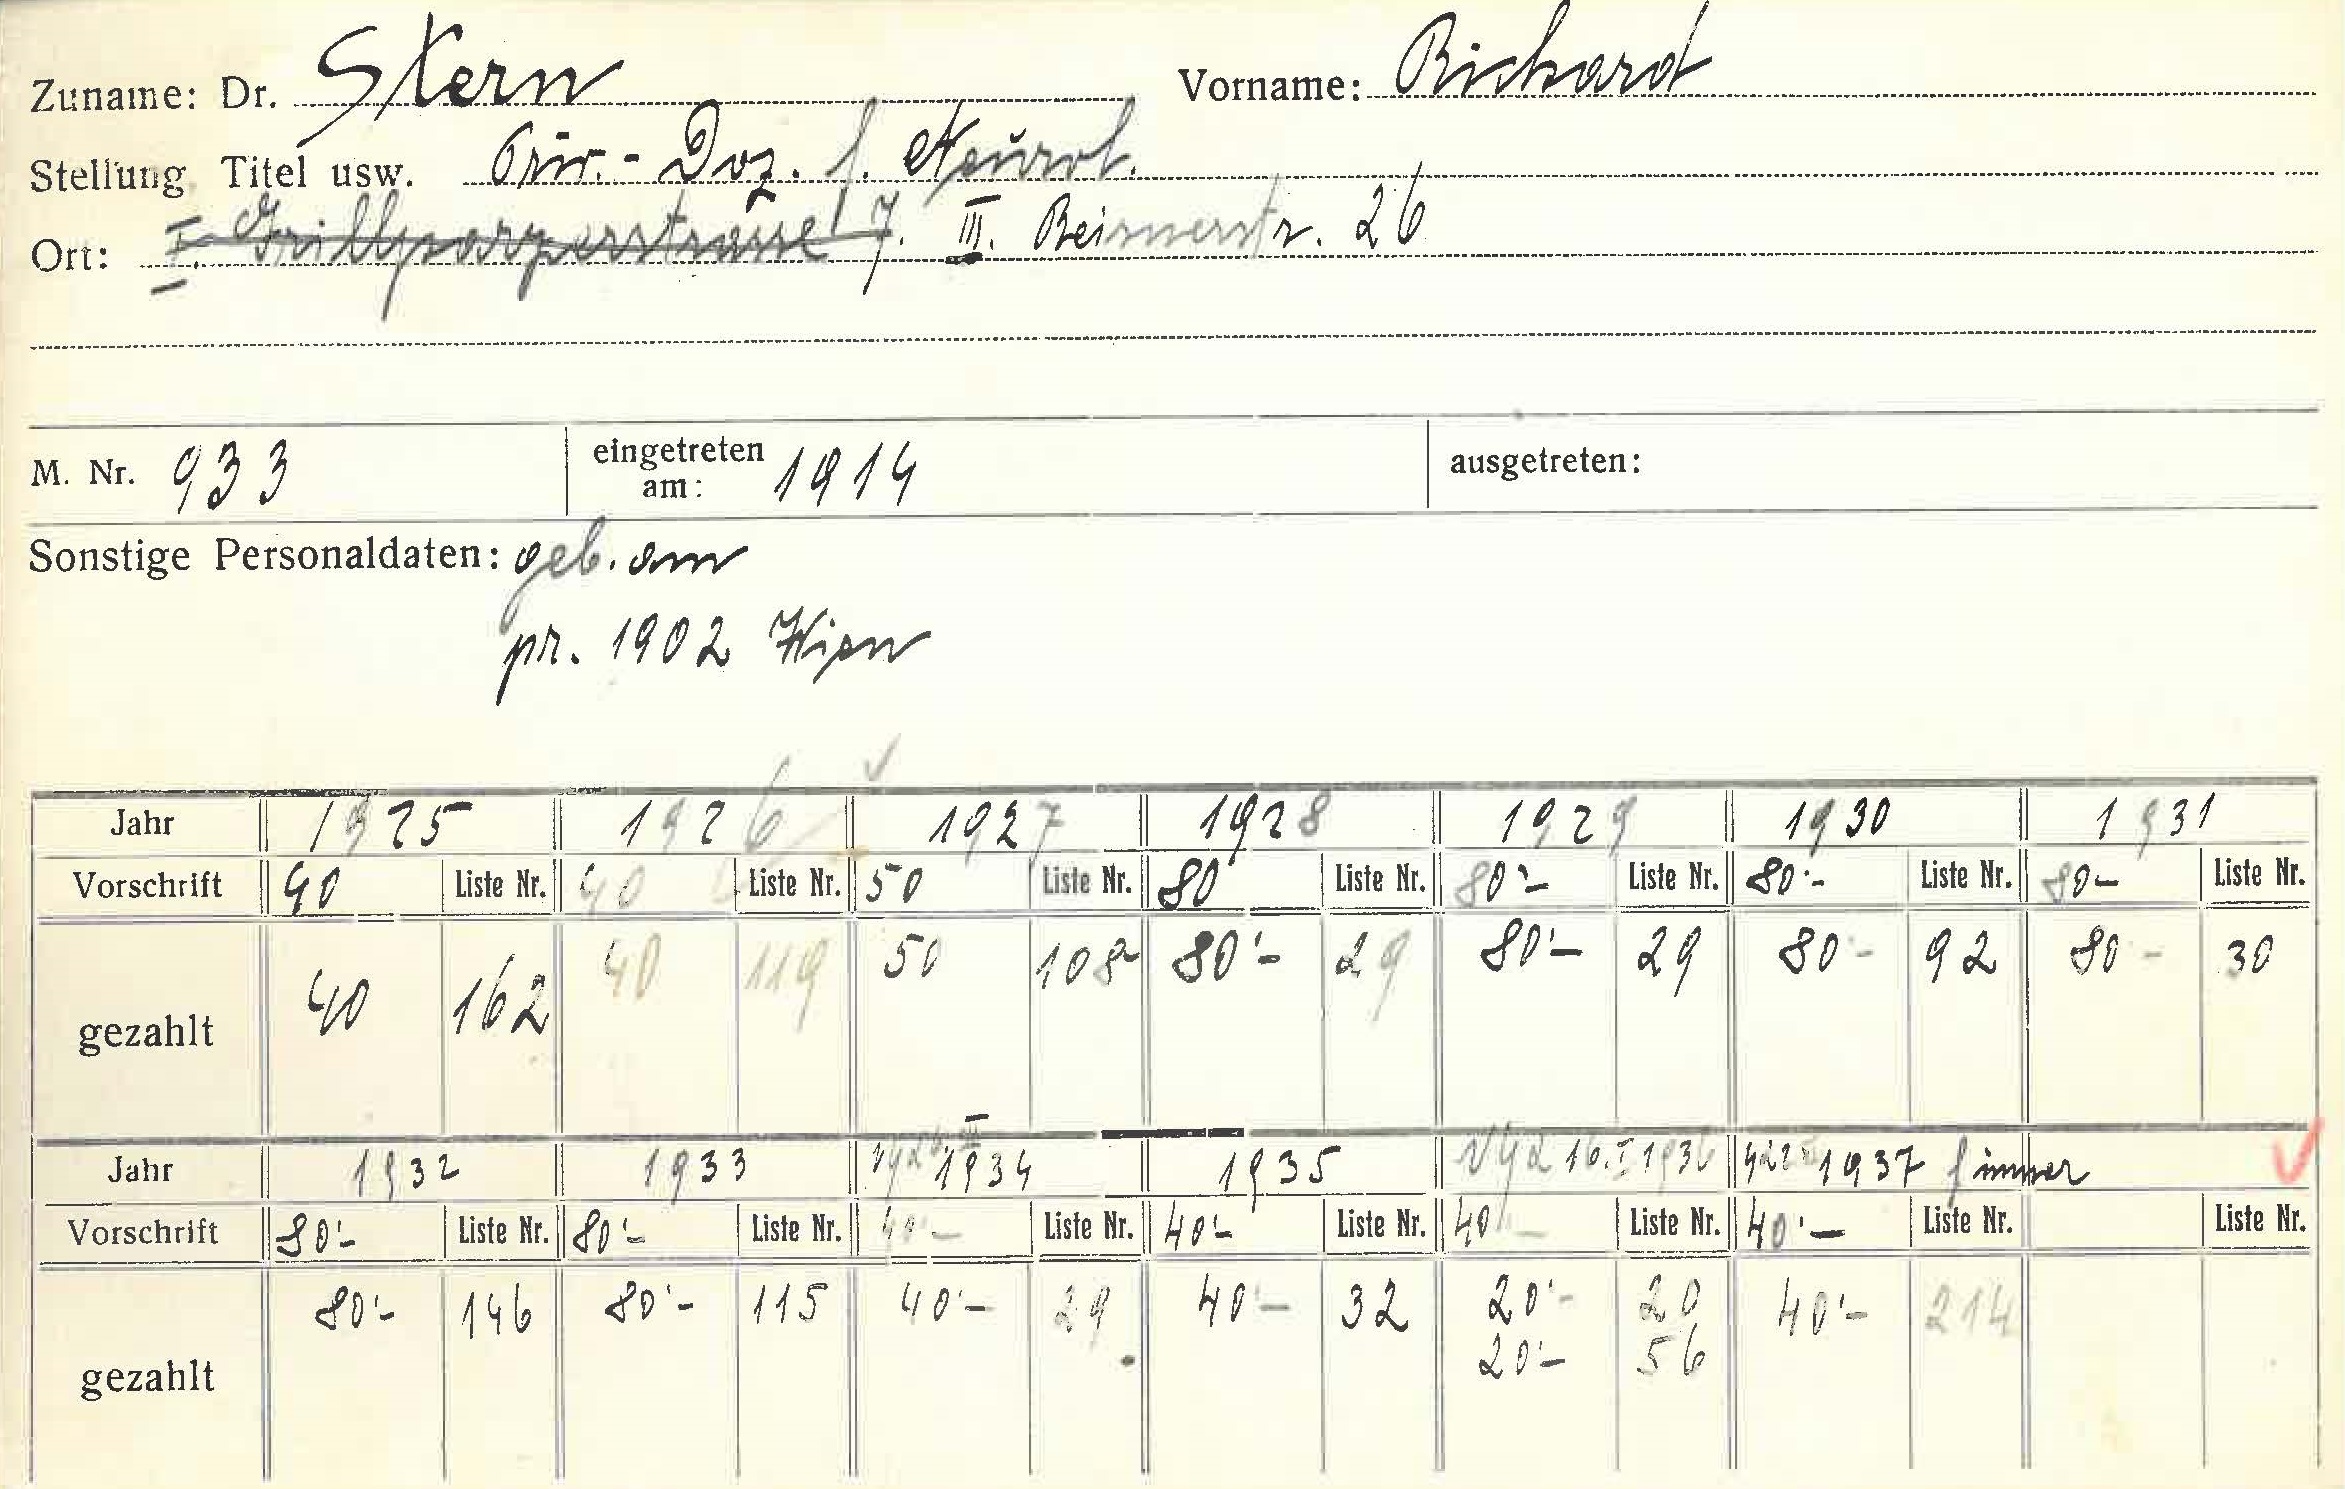 Zuname: Dr. Stern Vorname: Richard
Stellung Titel usw. Priv.-Doz. f. Neurol.
Ort: I. Grillparzerstrasse 7. III. Reisnerstr. 26
M. Nr. 933 eingetreten am: 1914 ausgetreten:
Sonstige Personaldaten: geb. am
pr. 1902 Wien
Jahr 1925 1926 1927 1928 1929 1930 1931
Vorschrift 40 Liste Nr. 40 Liste Nr. 50 Liste Nr. 80 Liste Nr. 80'- Liste Nr. 80'- Liste Nr. 80- Liste Nr.
gezahlt 40 162 40 119 50 108 80'- 29 80'- 29 80'- 92 80- 30
Jahr 1932 1933 1934 1935 16. I 1936 1937 f immer
Vorschrift 80'- Liste Nr. 80'- Liste Nr. 40'- Liste Nr. 40'- Liste Nr. 40'- Liste Nr. 40'- Liste Nr. Liste Nr.
gezahlt 80'- 146 80'- 115 40'- 29 40'- 32 20'- 20 40'- 214
20'- 56